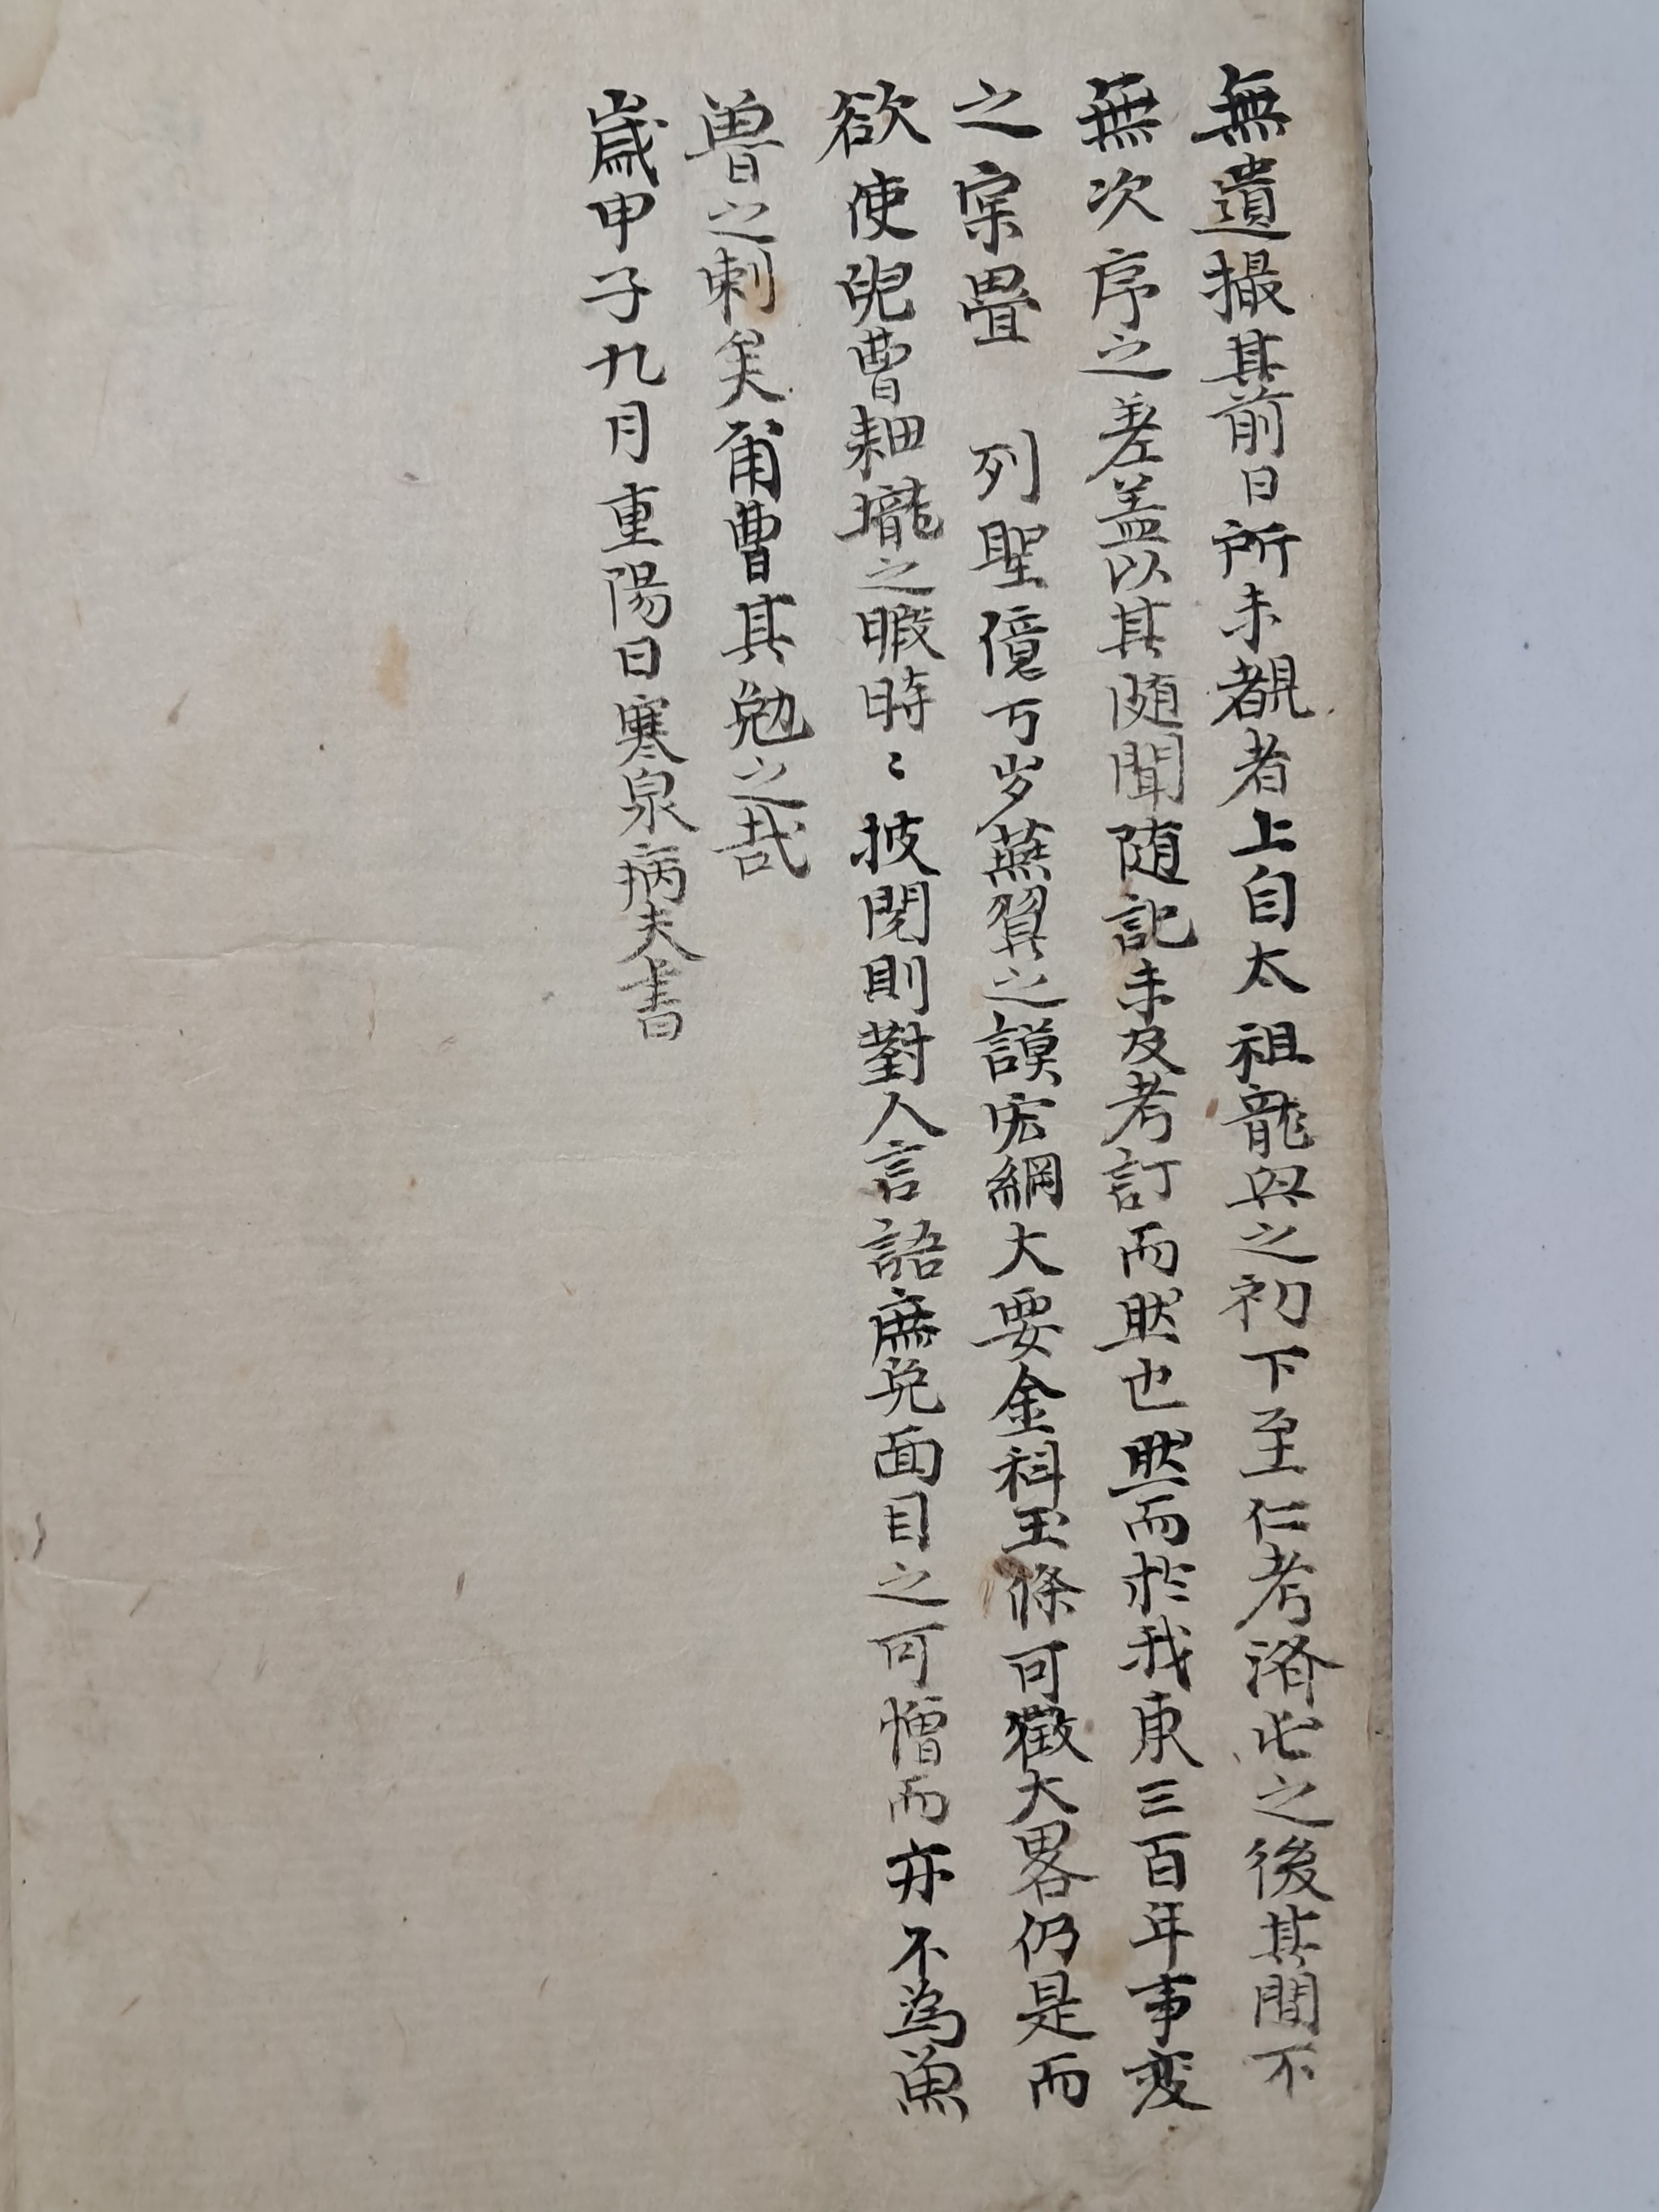 無遺撮其前日所未覩者上自太祖龍興之初下至仁考済屯之後其間不
無次序之差盖以其随聞随記未及考訂而然也然而於我東三百年事変
之案疊 列聖億万岁燕翼之謨宏綱大要金科玉條可徵大畧仍是而
欲使兒曹耕壠之暇時〻披閱則對人言語庶免面目之可憎而亦不為魚
魯之刺矣甭曹其勉之哉
歲甲子九月重陽日寒泉病夫書